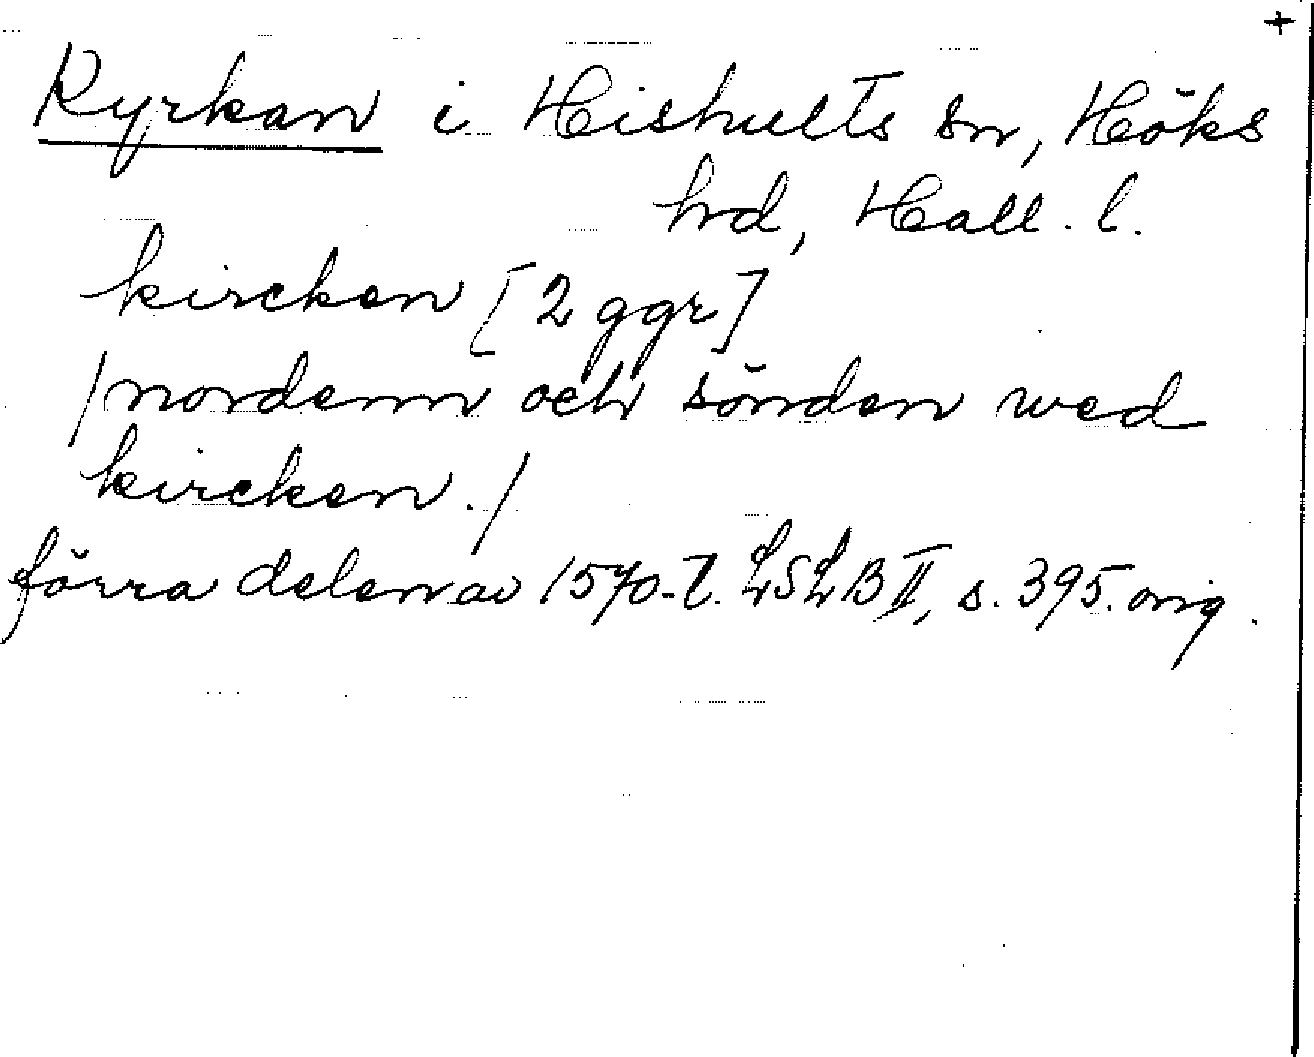 +
Kyrkan i Hishults sn, Höks
hrd, Hall. l.
kircken [2 ggr]
/nordenn och sönden wed
kircken./
förra delen av 1570-t. LSLB II, s. 395. orig.